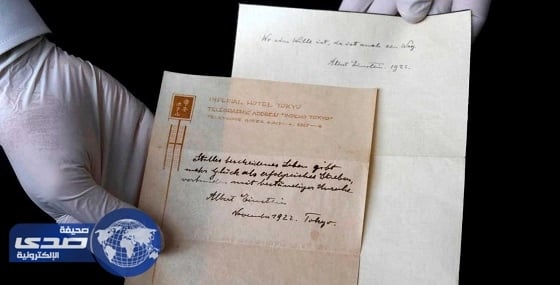 Wo ein Wille ist, da ist auch ein Weg.
Albert Einstein. 1922.
帝国ホテル
IMPERIAL HOTEL TOKYO
TELEGRAPHIC ADDRESS "IMPHO TOKYO"
Stilles bescheidenes Leben gibt
mehr Glück als erfolgreiches Streben,
verbunden mit beständiger Unruhe.
Albert Einstein
November 1922. Tokyo.
صحيفة
صدى
الإلكترونية